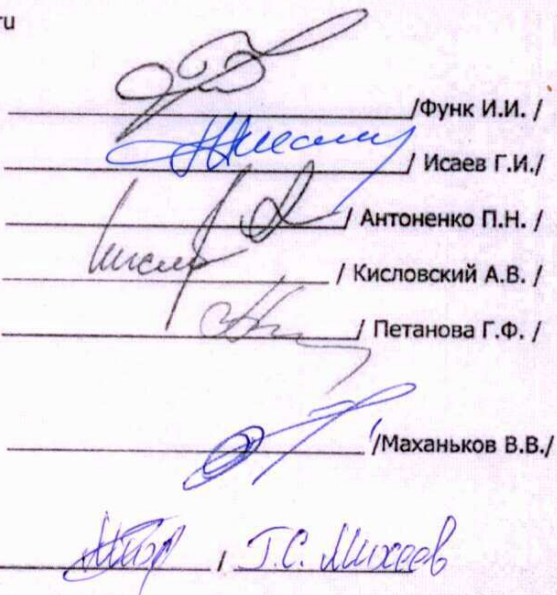 ru
/Функ И.И. /
/ Исаев Г.И./
/ Антоненко П.Н. /
/ Кисловский А.В. /
/ Петанова Г.Ф. /
/Маханьков В.В./
/ Г.С. Михеев